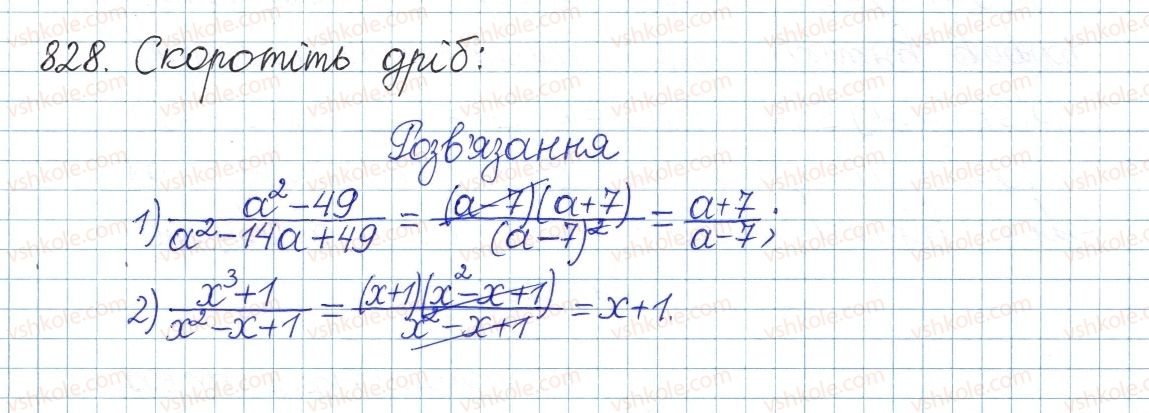 828. Скоротіть дріб:
Розв'язання
1) (a² - 49)/(a² - 14a + 49) = ((a - 7)(a + 7))/((a - 7)²) = (a + 7)/(a - 7);
2) (x³ + 1)/(x² - x + 1) = ((x + 1)(x² - x + 1))/(x² - x + 1) = x + 1.